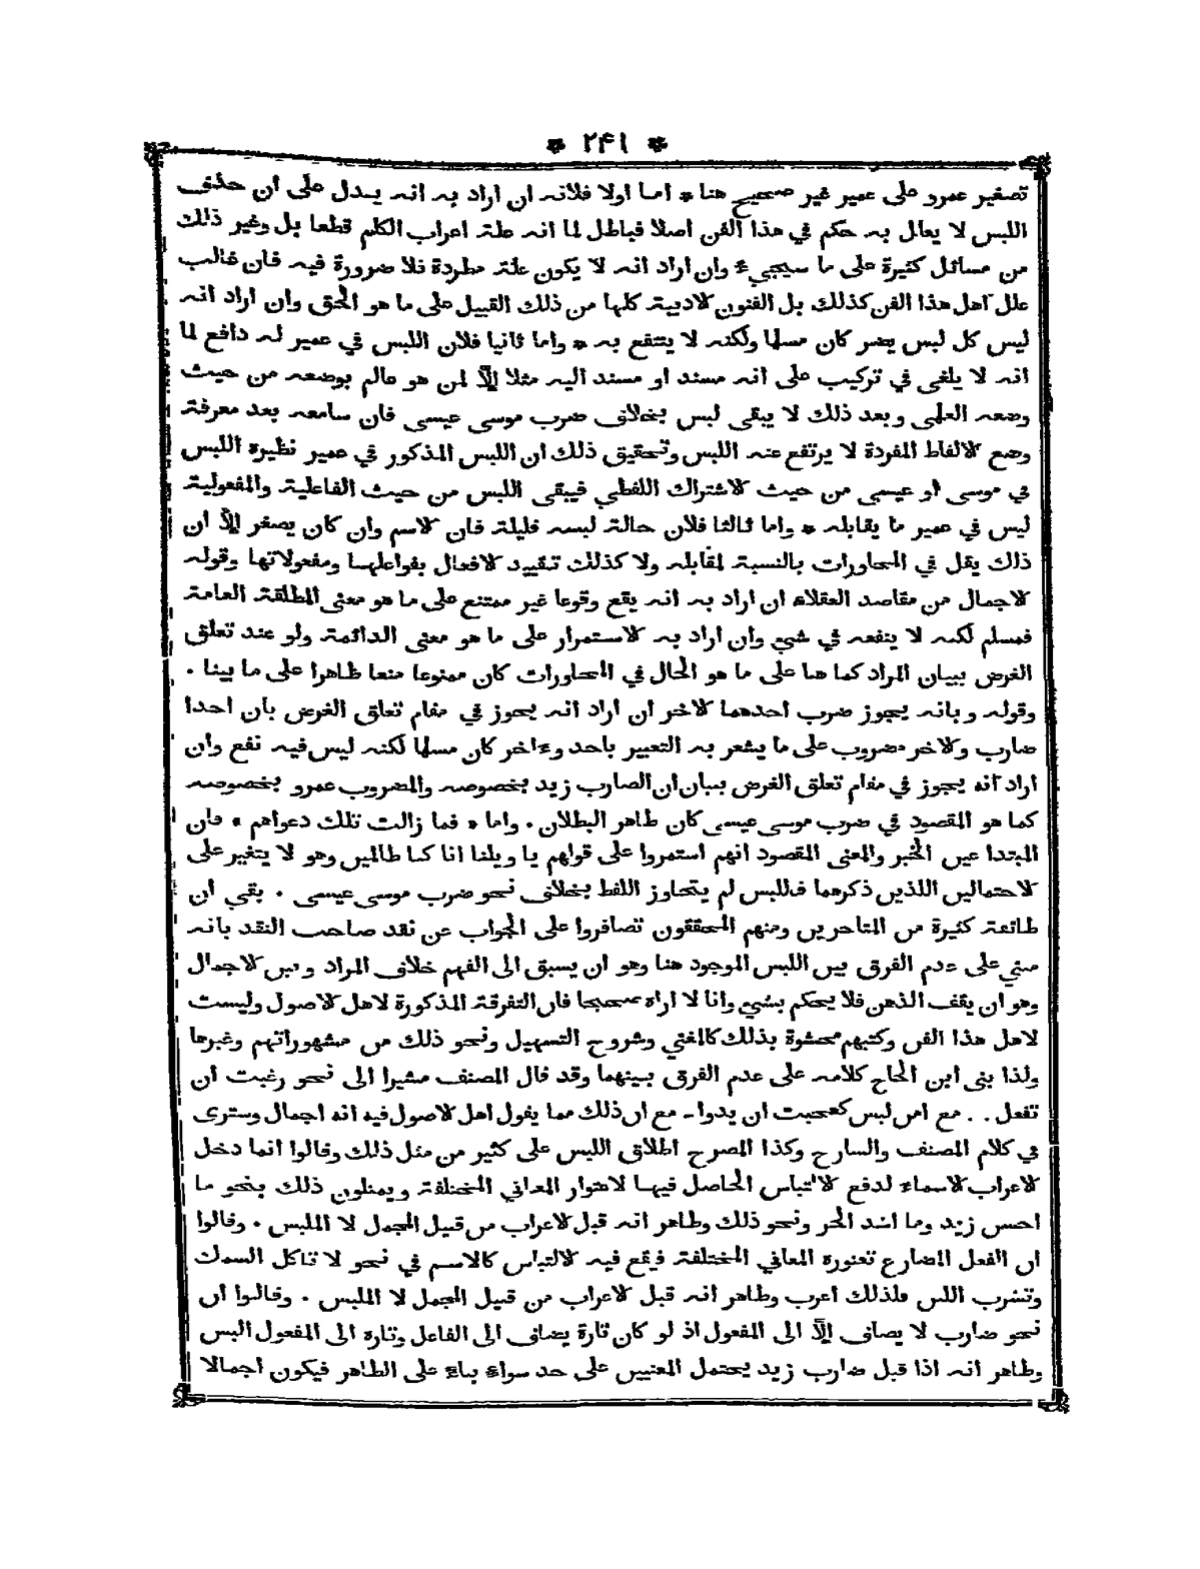 * ٢٤١ *
تصغير عمرو على عمير غير صحيح هنا * اما اولا فلانه ان اراد به انه يدل على ان حذف
اللبس لا يعلل به حكم في هذا الفن اصلا فباطل لما انه علة اعراب الكلم قطعا بل وغير ذلك
من مسائل كثيرة على ما سيجيء وان اراد انه لا يكون علة مطردة فلا ضرورة فيه فان غالب
علل اهل هذا الفن كذلك بل الفنون الادبية كلها من ذلك القبيل على ما هو الحق وان اراد انه
ليس كل لبس يضر كان مسلما ولكنه لا ينتفع به * واما ثانيا فلان اللبس في عمير له دافع لما
انه لا يلغى في تركيب على انه مسند او مسند اليه مثلا إلّا لمن هو عالم بوضعه من حيث
وضعه العلمي وبعد ذلك لا يبقى لبس بخلاف ضرب موسى عيسى فان سامعه بعد معرفة
وضع الالفاظ المفردة لا يرتفع عنه اللبس وتحقيق ذلك ان اللبس المذكور في عمير نظيره اللبس
في موسى او عيسى من حيث الاشتراك اللفظي فيبقى اللبس من حيث الفاعلية والمفعولية
ليس في عمير ما يقابله * واما ثالثا فلان حالة لبسه قليلة فان الاسم وان كان يصغر إلّا ان
ذلك يقل في المحاورات بالنسبة لمقابله ولا كذلك تقييد الافعال بفواعلها ومفعولاتها وقوله
الاجمال من مقاصد العقلاء ان اراد به انه يقع وقوعا غير ممتنع على ما هو معنى المطلقة العامة
فمسلم لكنه لا ينفعه في شيي وان اراد به الاستمرار على ما هو معنى الدائمة ولو عند تعلق
الغرض ببيان المراد كما هنا على ما هو الحال في المحاورات كان ممنوعا منعا ظاهرا على ما بينا .
وقوله وبانه يجوز ضرب احدهما الاخر ان اراد انه يجوز في مقام تعلق الغرض بان احدا
ضارب والاخر مضروب على ما يشعر به التعبير باحد وءاخر كان مسلما لكنه ليس فيه نفع وان
اراد انه يجوز في مقام تعلق الغرض ببيان ان الضارب زيد بخصوصه والمضروب عمرو بخصوصه
كما هو المقصود في ضرب موسى عيسى كان ظاهر البطلان . واما * فما زالت تلك دعواهم * فان
المبتدا عين الخبر والمعنى المقصود انهم استمروا على قولهم يا ويلنا انا كنا ظالمين وهو لا يتغير على
الاحتمالين اللذين ذكرهما فاللبس لم يتجاوز اللفظ بخلاف نحو ضرب موسى عيسى . بقي ان
طائفة كثيرة من المتاخرين ومنهم المحققون تضافروا على الجواب عن نقد صاحب النقد بانه
مبني على عدم الفرق بين اللبس الموجود هنا وهو ان يسبق الى الفهم خلاف المراد وبين الاجمال
وهو ان يقف الذهن فلا يحكم بشيي وانا لا اراه صحيحا فان التفرقة المذكورة لاهل الاصول وليست
لاهل هذا الفن وكتبهم محشوة بذلك كالمغني وشروح التسهيل ونحو ذلك من مشهوراتهم وغيرها
ولذا بنى ابن الحاج كلامه على عدم الفرق بينهما وقد قال المصنف مشيرا الى نحو رغبت ان
تفعل . . مع امن لبس كعجبت ان يدوا - مع ان ذلك مما يقول اهل الاصول فيه انه اجمال وسترى
في كلام المصنف والشارح وكذا المصرح اطلاق اللبس على كثير من مثل ذلك وقالوا انما دخل
الاعراب الاسماء لدفع الالتباس الحاصل فيها لاعتوار المعاني المختلفة ويمثلون ذلك بنحو ما
احسن زيد وما اشد الحر ونحو ذلك وظاهر انه قبل الاعراب من قبيل المجمل لا الملبس . وقالوا
ان الفعل المضارع تعتوره المعاني المختلفة فيقع فيه الالتباس كالاسم في نحو لا تاكل السمك
وتشرب اللبن فلذلك اعرب وظاهر انه قبل الاعراب من قبيل المجمل لا الملبس . وقالوا ان
نحو ضارب لا يضاف إلّا الى المفعول اذ لو كان تارة يضاف الى الفاعل وتارة الى المفعول البس
وظاهر انه اذا قيل ضارب زيد يحتمل المعنيين على حد سواء بناء على الظاهر فيكون اجمالا